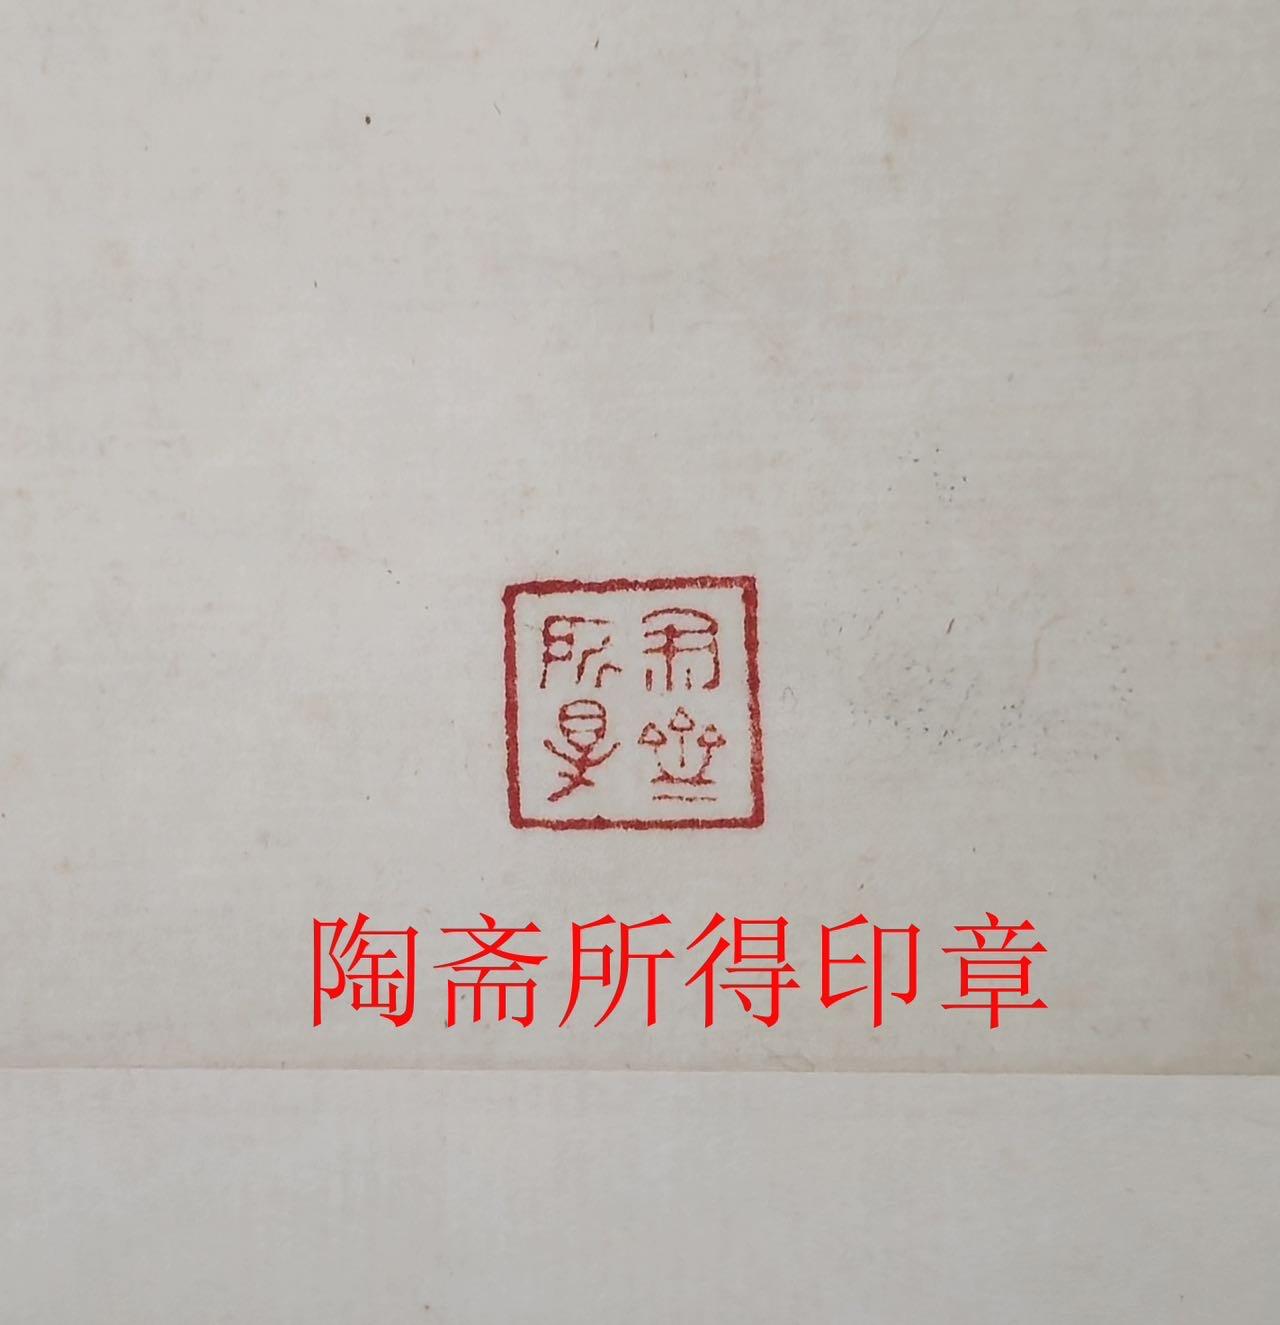 匋斋所得
陶斋所得印章